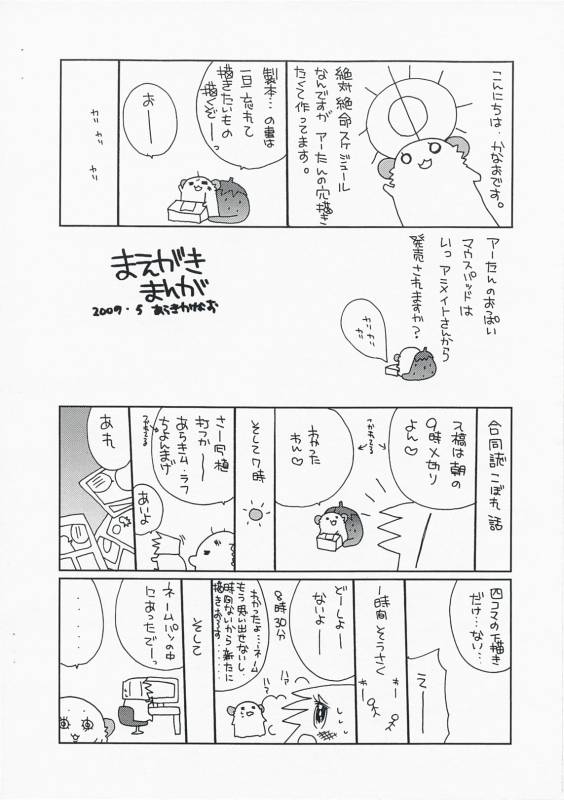 こんにちは、かなおです。
絶対絶命スケジュール
なんですが アーたんの穴描き
たくて作ってます。
製本…の事は
一旦忘れて
描きたいもの
描くぞーっ
おー
カリ カリ カリ
アーたんのおっぱい
マウスパッドは
いつ アニメイトさんから
発売されますか？
カリカリ
まえがき
まんが
2009.5 あらきかなお
合同誌こぼれ話
入稿は朝の
9時〆切り
よん♡
つかれてる
わかった
わん♡
そして7時
さー写植
打つかー
あらきム、ラフ
ちょんまげ
つかれてる
あいよ
あれ
四コマの下描き
だけ…ない…
えー
1時間そうさく
どーしよー
ないよー
8時30分
わかったよ…ネーム
もう思い出せないし
時間ないから新たに
描きおろす……
ハァ ハァ
そして
ネームパソの中
にあったでーっ